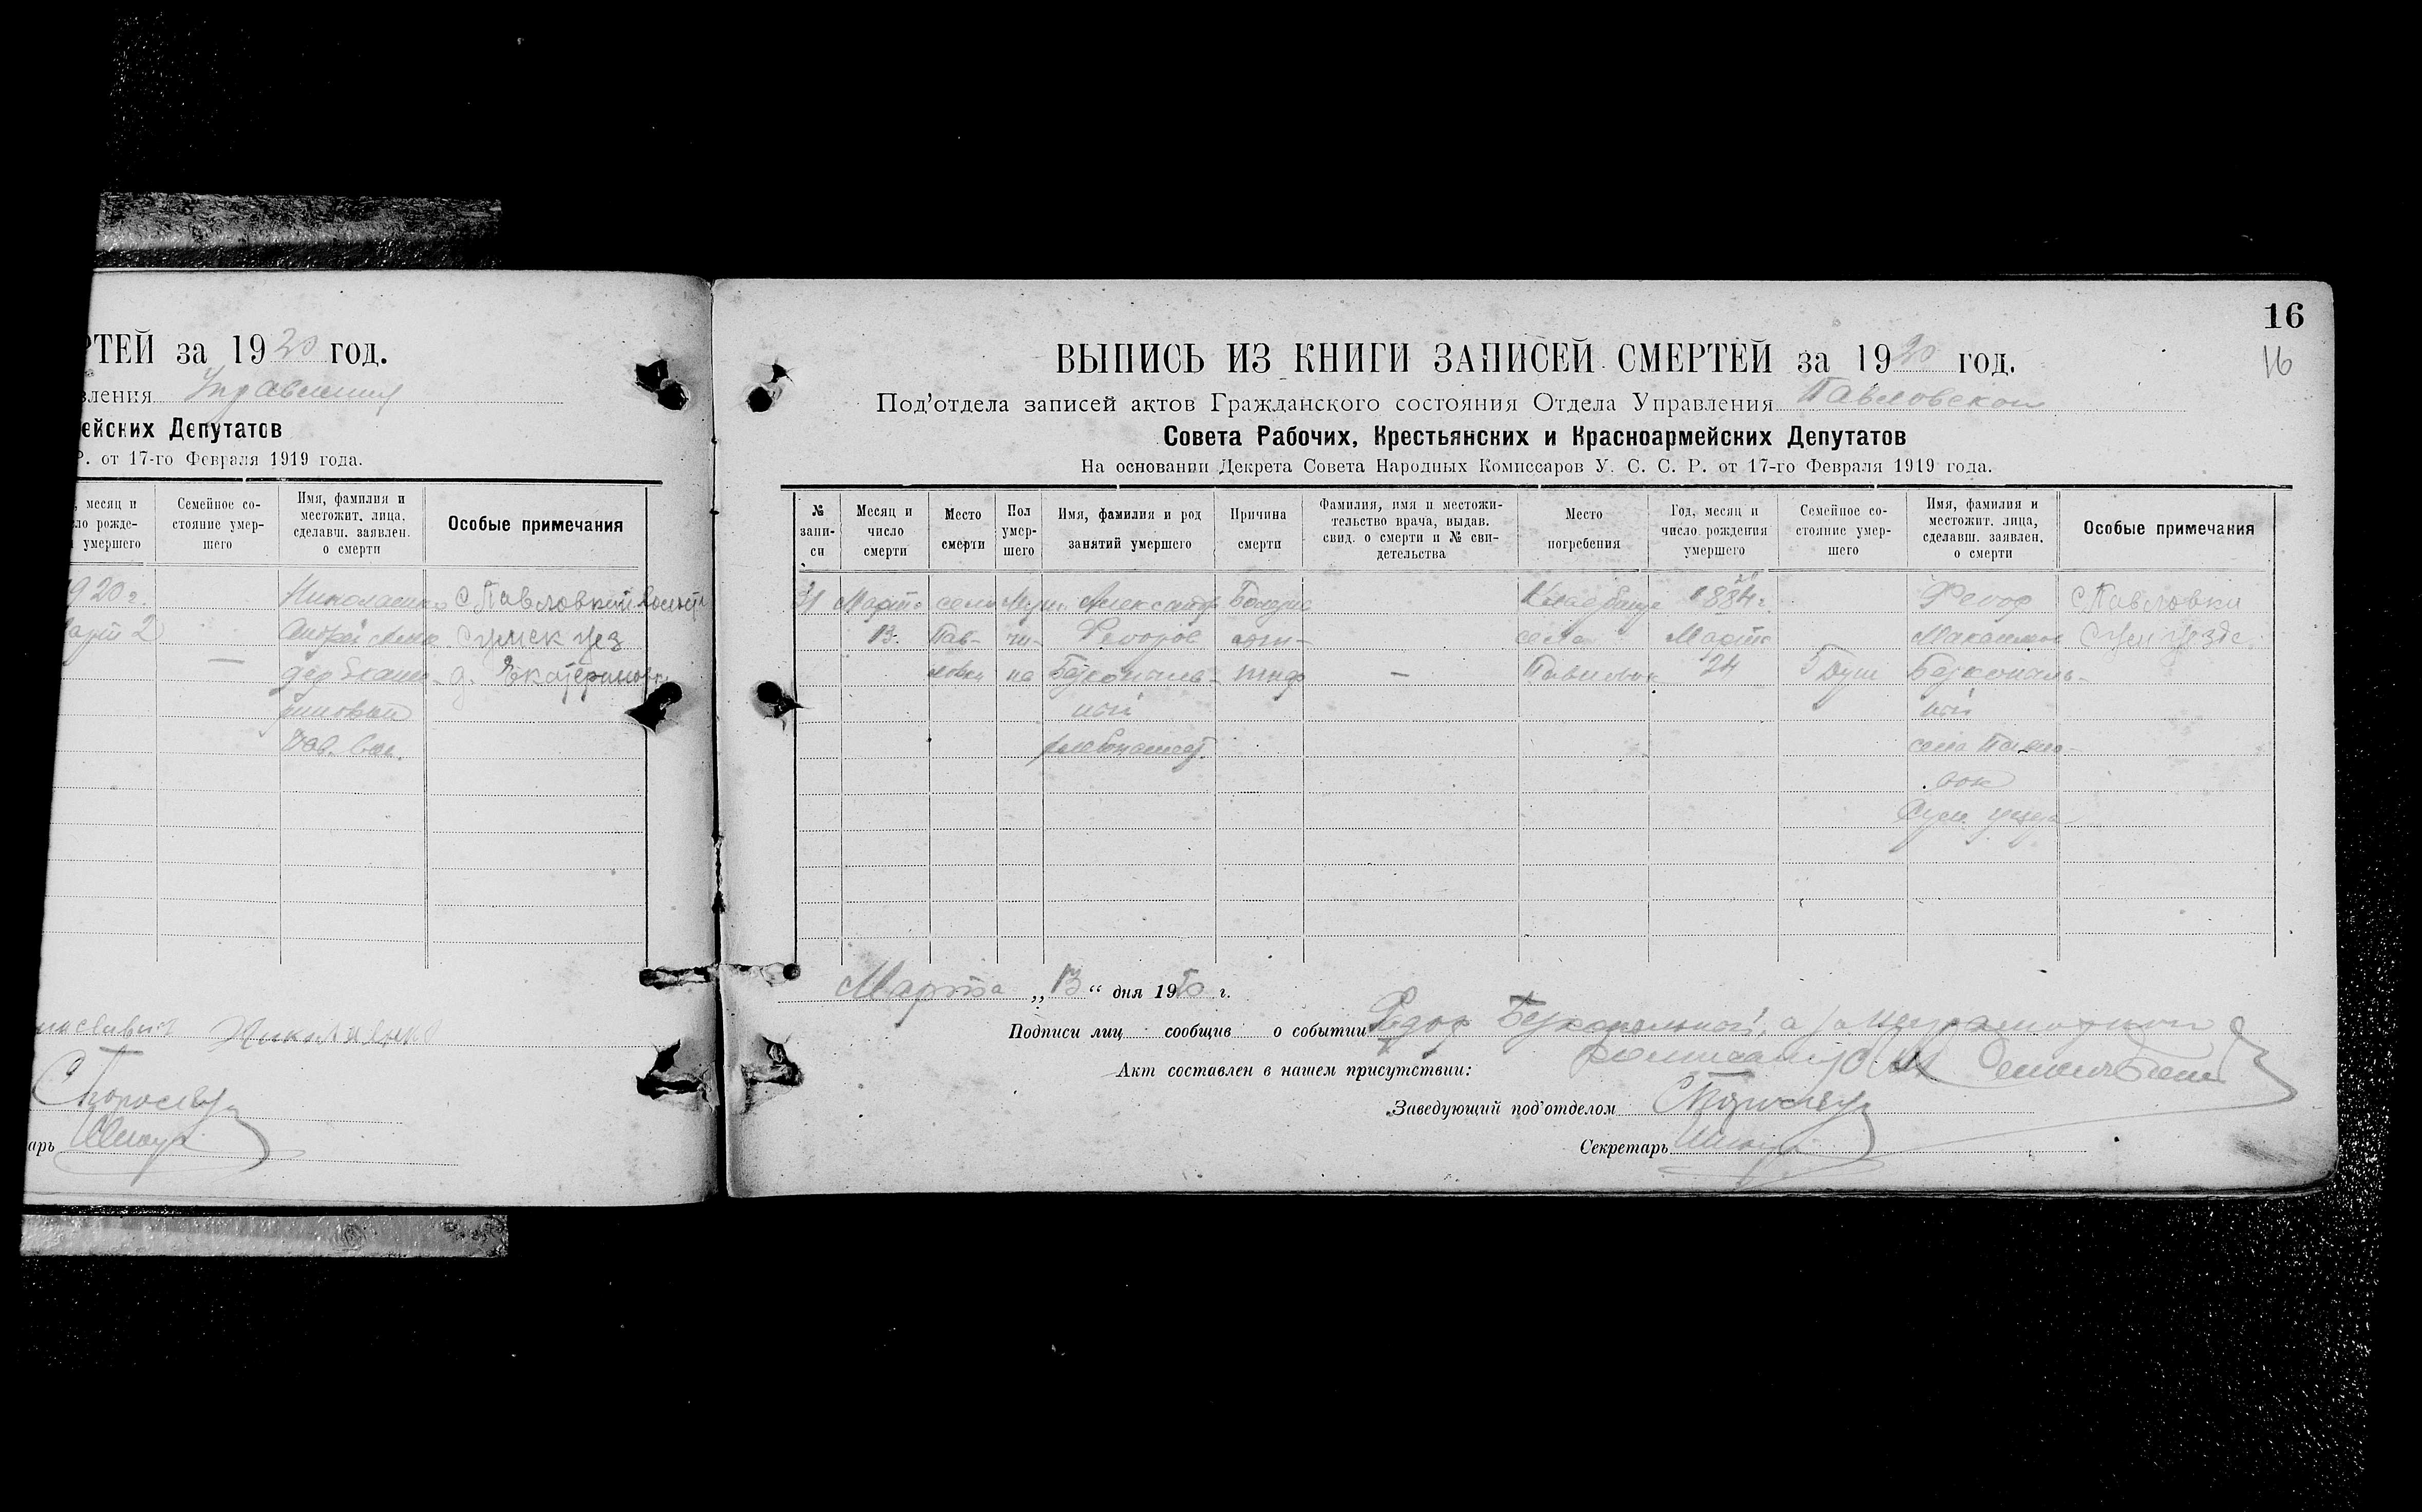 РТЕЙ за 1920 год.
вления Управления
ейских Депутатов
Р. от 17-го Февраля 1919 года.
, месяц и
ло рожде-
умершего
Семейное со-
стояние умер-
шего
Имя, фамилия и
местожит. лица,
сделавш. заявлен.
о смерти
Особые примечания
1920 г.
Март 2
—
Николаенко
Андрей
С. Павловкий
Сумск уез
д. Екатериновки
Пав. вол.
арь
16
16
ВЫПИСЬ ИЗ КНИГИ ЗАПИСЕЙ СМЕРТЕЙ за 1920 год.
Под'отдела записей актов Гражданского состояния Отдела Управления Павловской
Совета Рабочих, Крестьянских и Красноармейских Депутатов
На основании Декрета Совета Народных Комиссаров У. С. С. Р. от 17-го Февраля 1919 года.
№
запи-
си
Месяц и
число
смерти
Место
смерти
Пол
умер-
шего
Имя, фамилия и род
занятий умершего
Причина
смерти
Фамилия, имя и местожи-
тельство врача, выдав.
свид. о смерти и № сви-
детельства
Место
погребения
Год, месяц и
число рождения
умершего
Семейное со-
стояние умер-
шего
Имя, фамилия и
местожит. лица,
сделавш. заявлен.
о смерти
Особые примечания
31
Марта
13
село
Пав-
ловки
Муж-
чи-
на
Александр
Федоров
Безкопыль-
ный
хлебопашец
Болезнь
тиф
—
Кладбище
села
Павловок
1884 г.
Март
24
Федор
Максимов
Безкопыль-
ный
села Павло-
вок
Сум. уезда
С. Павловки
Сум уезда
Марта „13“ дня 1920 г.
Подписи лиц сообщив о событии Федор Безкопыльной, а за неграмотного
Акт составлен в нашем присутствии:
Заведующий под'отделом
Секретарь